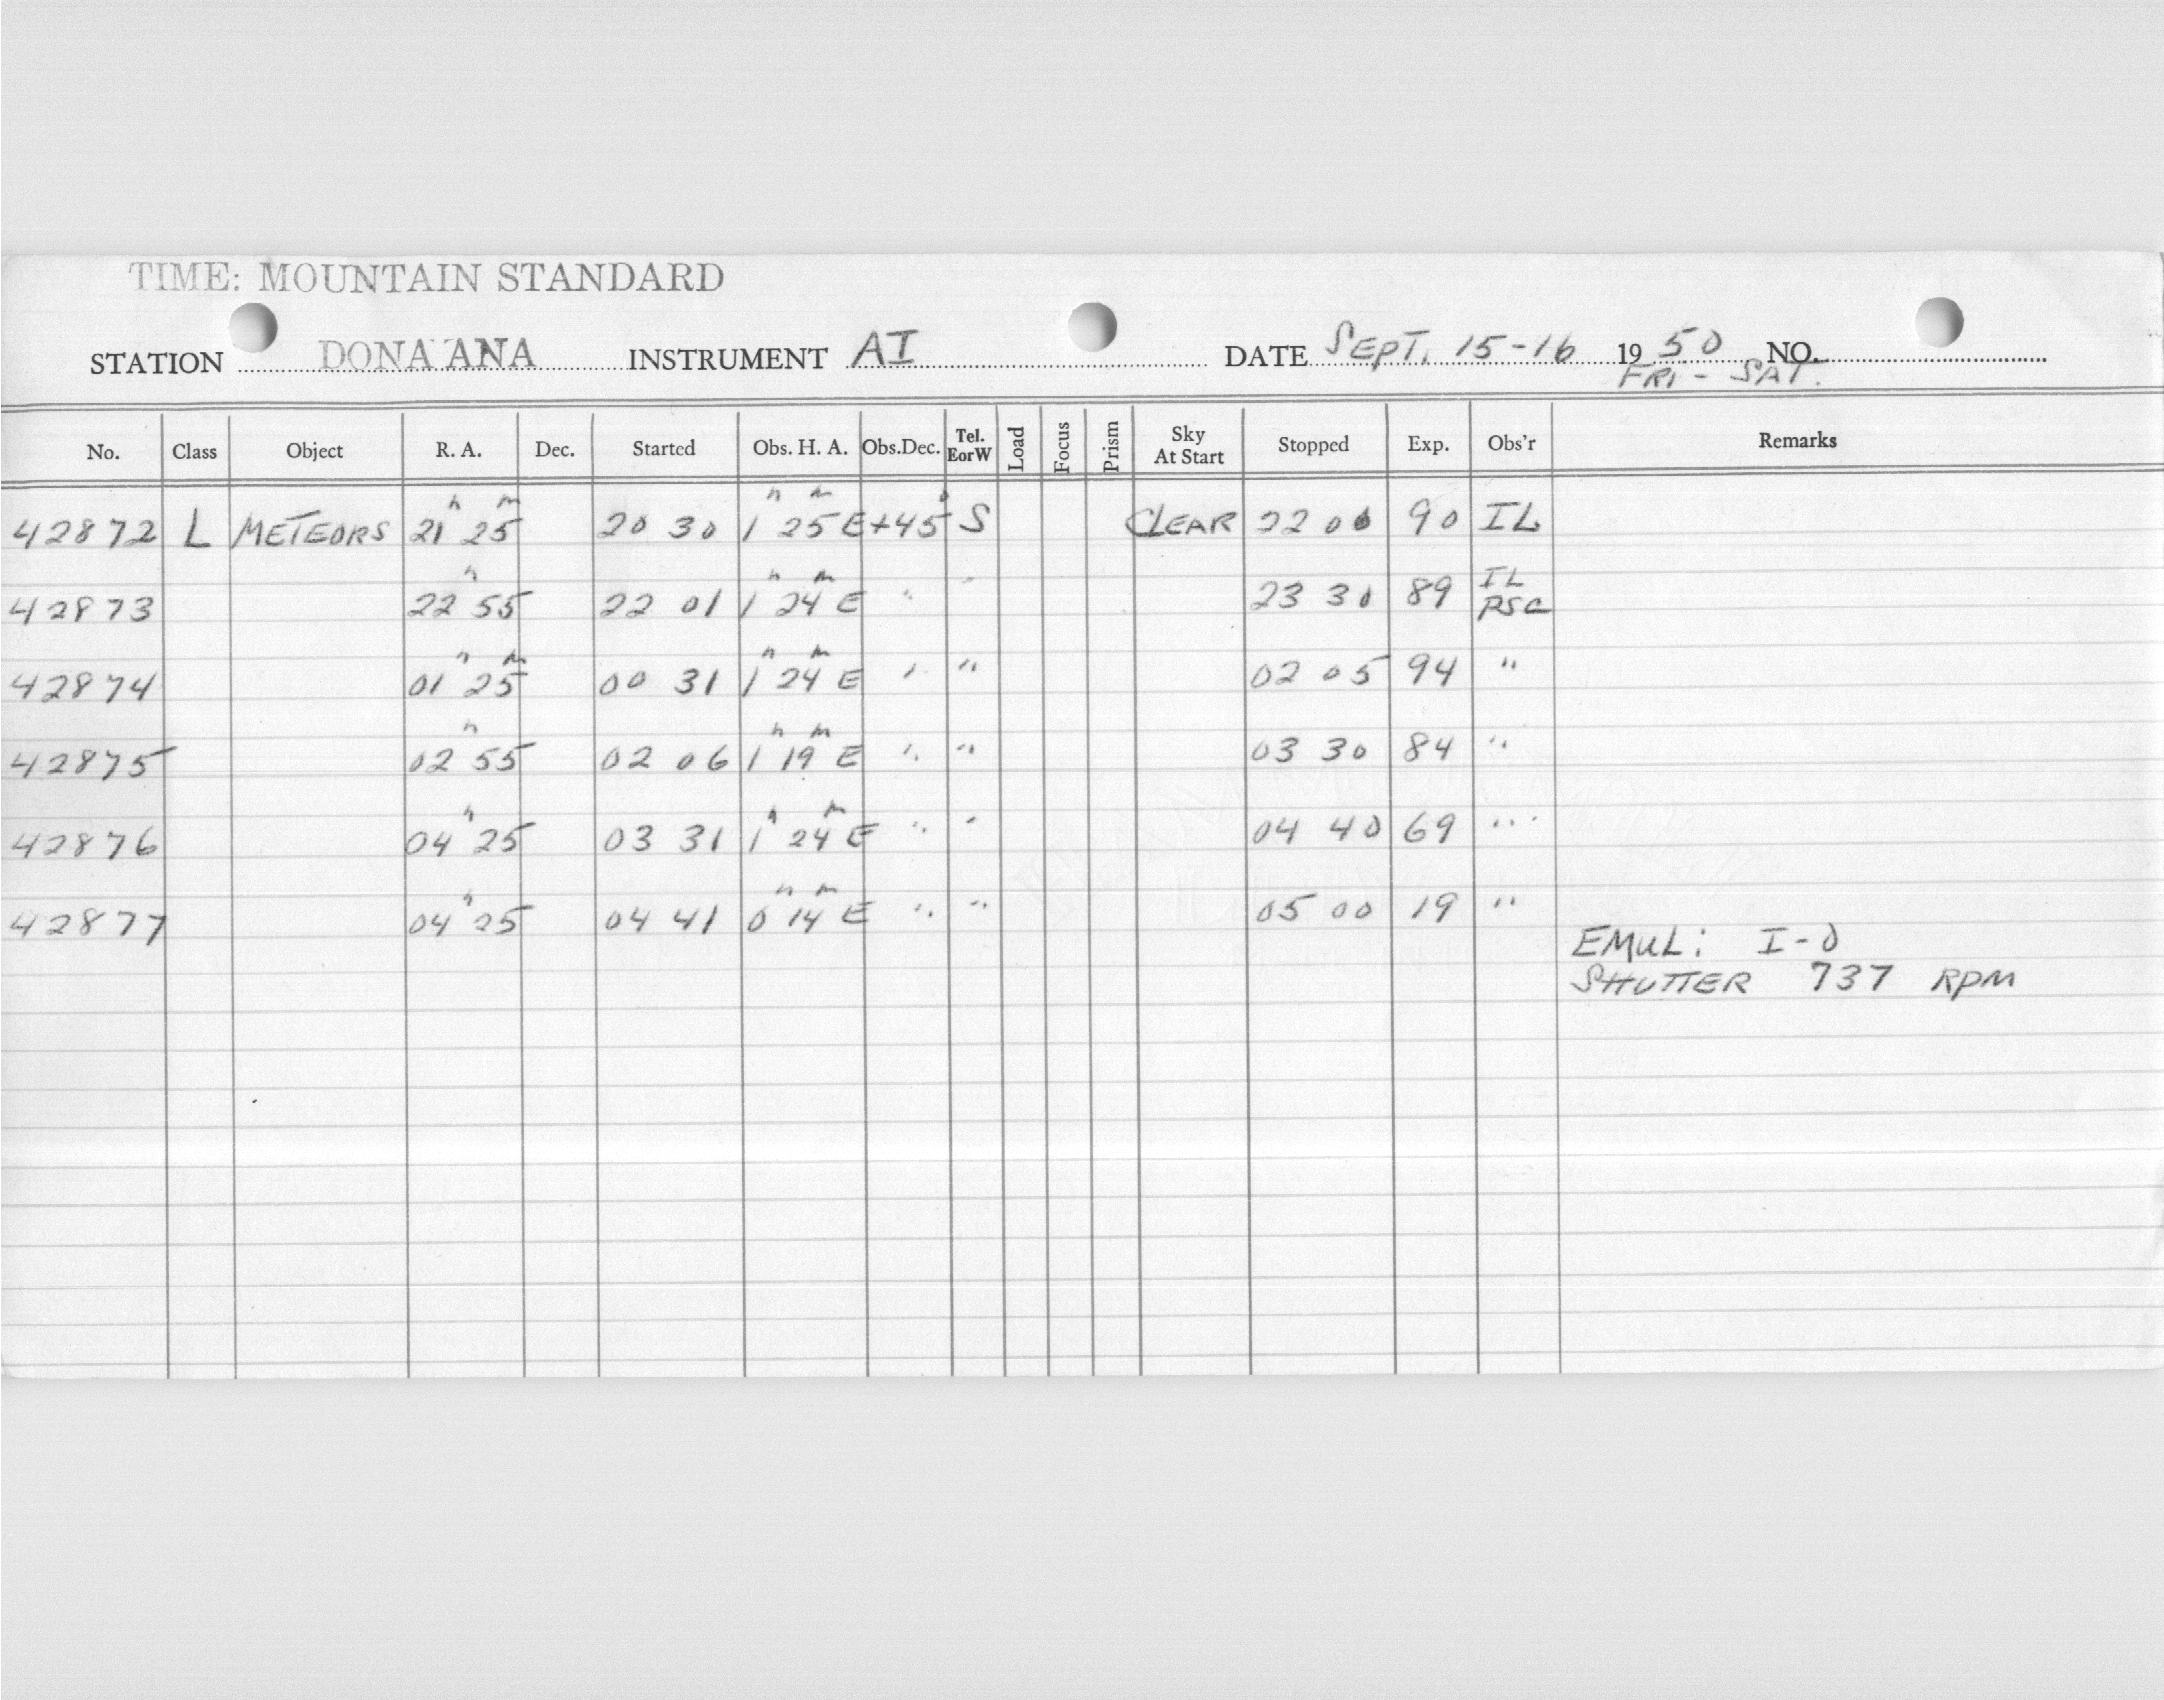 TIME: MOUNTAIN STANDARD
STATION DONA ANA INSTRUMENT AI DATE SEPT. 15-16 1950 NO.
FRI - SAT.
No. Class Object R. A. Dec. Started Obs. H. A. Obs.Dec. Tel. EorW Load Focus Prism Sky At Start Stopped Exp. Obs'r Remarks
42872 L METEORS 21h 25m 20 30 1h 25m E +45° S CLEAR 22 00 90 IL
42873 22h 55 22 01 1h 24m E " " 23 30 89 IL PSC
42874 01h 25m 00 31 1h 24m E " " 02 05 94 "
42875 02h 55 02 06 1h 19m E " " 03 30 84 "
42876 04h 25 03 31 1h 24m E " " 04 40 69 "
42877 04h 25 04 41 0h 14m E " " 05 00 19 "
EMUL: I-O
SHUTTER 737 RPM